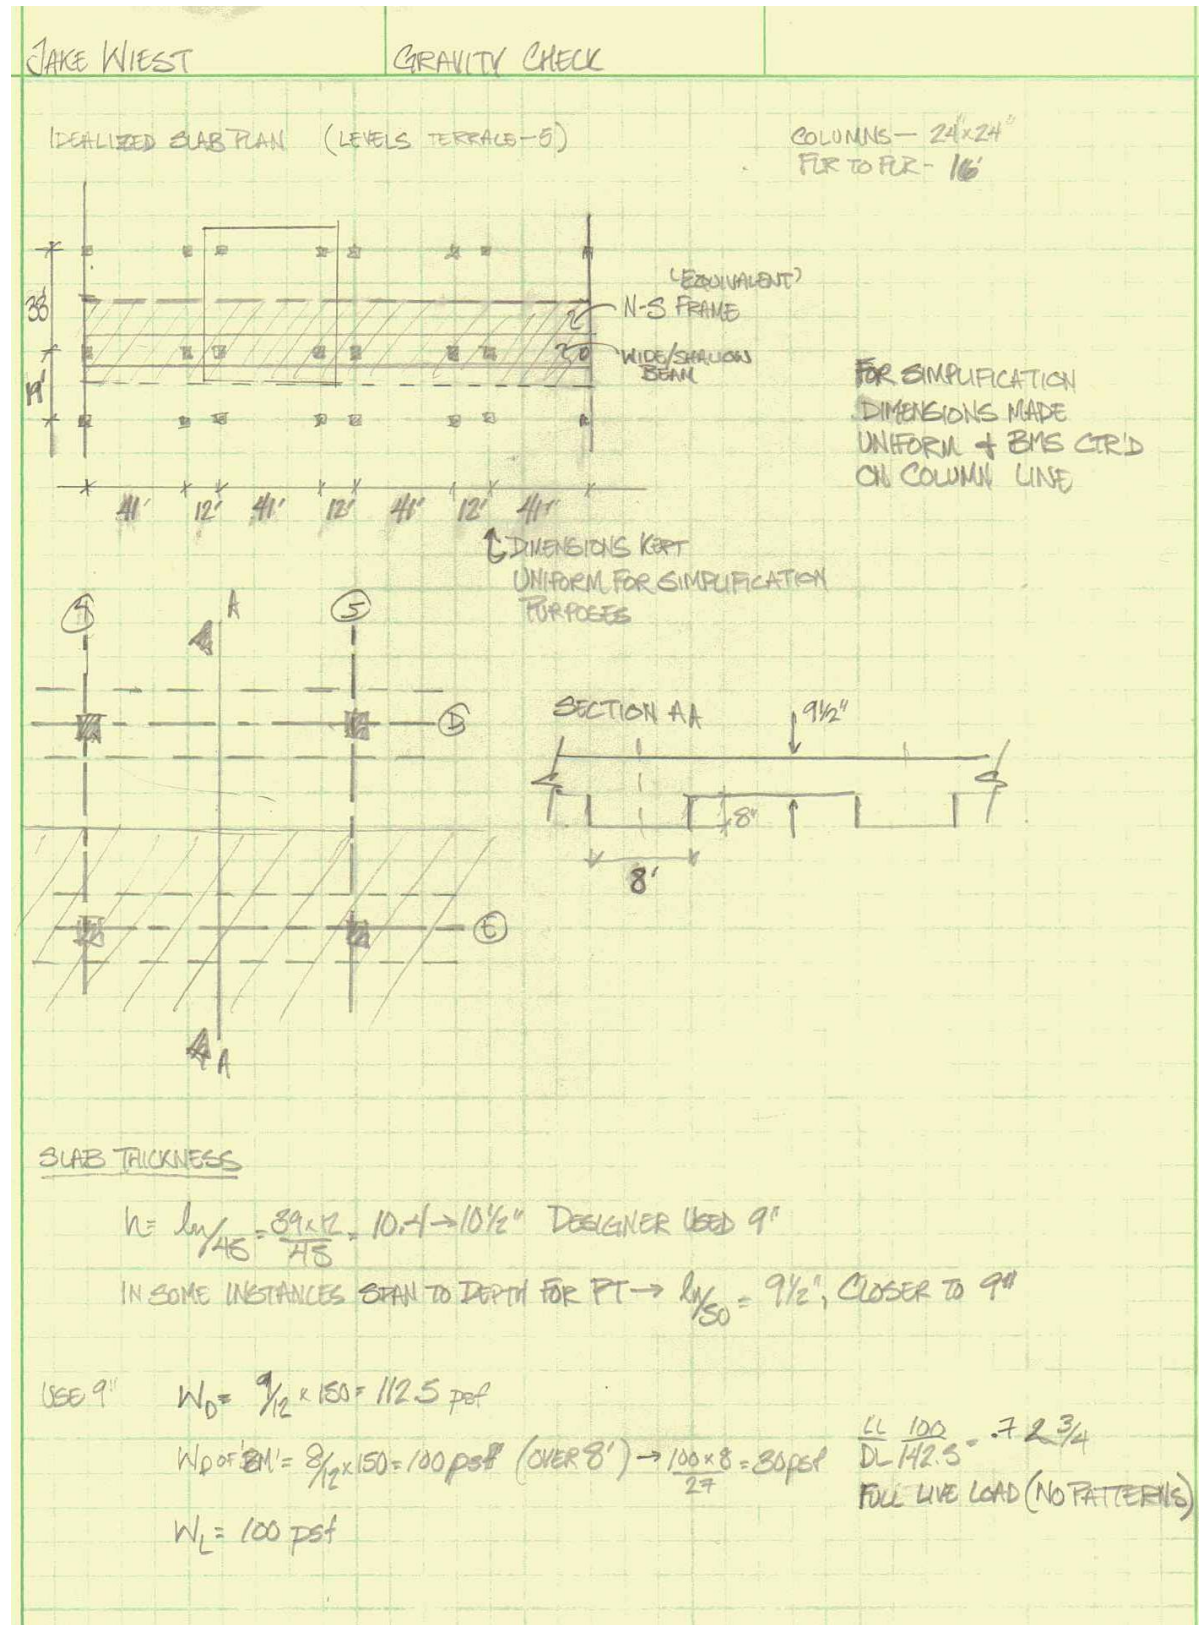 JAKE WIEST
GRAVITY CHECK
IDEALIZED SLAB PLAN (LEVELS TERRACE-5)
COLUMNS- 24"x24"
FLR TO FLR- 16'
38'
19'
"EQUIVALENT"
N-S FRAME
WIDE/SHALLOW
BEAM
FOR SIMPLIFICATION
DIMENSIONS MADE
UNIFORM + BMS CTR'D
ON COLUMN LINE
41' 12' 41' 12' 41' 12' 41'
DIMENSIONS KEPT
UNIFORM FOR SIMPLIFICATION
PURPOSES
4 A 5
D
SECTION AA
9½"
8"
8'
E
A
SLAB THICKNESS
h = ln/45 = 39x12/45 = 10.4 → 10½" DESIGNER USED 9"
IN SOME INSTANCES SPAN TO DEPTH FOR PT → ln/50 = 9½", CLOSER TO 9"
USE 9" WD = 9/12 x 150 = 112.5 psf
WD OF 'BM' = 8/12 x 150 = 100 psf (OVER 8') → 100 x 8/27 = 30 psf
LL/DL 100/142.5 = .7 < ¾
FULL LIVE LOAD (NO PATTERNS)
WL = 100 psf